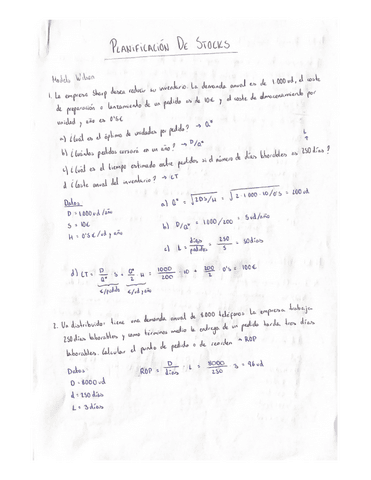 PLANIFICACIÓN DE STOCKS
Modelo Wilson
1. La empresa Sharp desea reducir su inventario. La demanda anual es de 1.000 ud, el coste
de preparación o lanzamiento de un pedido es de 10€ y el coste de almacenamiento por
unidad y año es 0'5€
a) ¿Cuál es el óptimo de unidades por pedido? → Q*
b) ¿Cuántos pedidos cursará en un año? → D/Q* L
c) ¿Cuál es el tiempo estimado entre pedidos si el número de días laborables es 250 días?
d) ¿Coste anual del inventario? → CT
Datos
D = 1.000 ud/año
S = 10€
H = 0'5 €/ud y año
a) Q* = √2DS/H = √2·1.000·10/0'5 = 200 ud
b) D/Q* = 1.000/200 = 5 ud/año
c) L = días/pedidos = 250/5 = 50 días
d) CT = D/Q* · S + Q*/2 · H = 1000/200 · 10 + 200/2 · 0'5 = 100€
€/pedido €/ud y año
2. Un distribuidor tiene una demanda anual de 8000 teléfonos. La empresa trabaja
250 días laborables y como término medio la entrega de un pedido tarda tres días
laborables. Calcular el punto de pedido o de reorden → ROP
Datos:
D = 8000 ud
d = 250 días
L = 3 días
ROP = D/días · L = 8000/250 · 3 = 96 ud